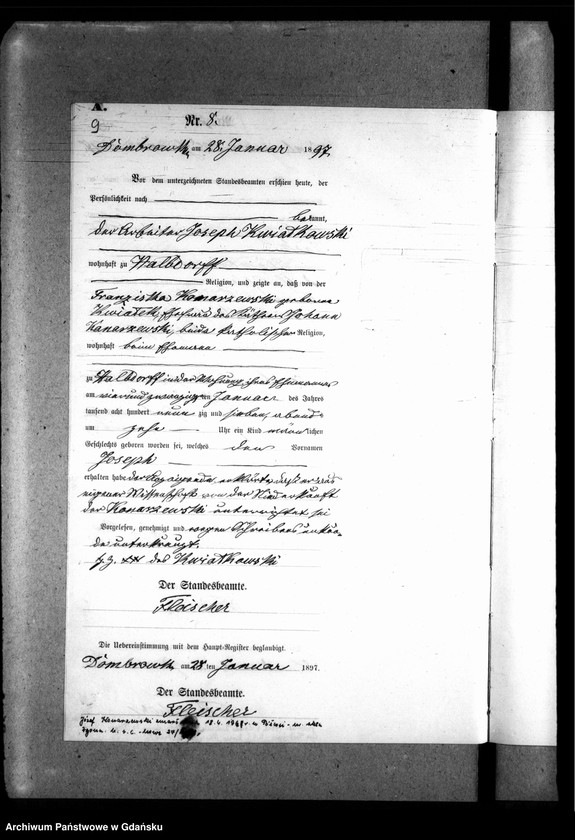 A.
9
Nr. 8.
Dombrowk, am 28. Januar 1897.
Vor dem unterzeichneten Standesbeamten erschien heute, der
Persönlichkeit nach
bekannt,
der Arbeiter Joseph Kwiatkowski
wohnhaft zu Halbdorff
Religion, und zeigte an, daß von der
Franziska Kanarzewski geborene
Kwiatek, Ehefrau des Johann
Kanarzewski, beide katholischer Religion,
wohnhaft beim Ehemann
zu Halbdorff in der Wohnung ihres Ehemannes
am vierundzwanzigsten Januar des Jahres
tausend acht hundert neunzig und sieben, abends
um zehn Uhr ein Kind männlichen
Geschlechts geboren worden sei, welches den Vornamen
Joseph
erhalten habe der Anzeigende erklärte daß er aus
eigener Wissenschaft von der Niederkunft
der Kanarzewski unterrichtet sei
Vorgelesen, genehmigt und wegen Schreibensunkun-
de unterkreuzt.
xxx des Kwiatkowski
Der Standesbeamte.
Fleischer
Die Uebereinstimmung mit dem Haupt-Register beglaubigt.
Dombrowk, am 28 ten Januar 1897.
Der Standesbeamte.
Fleischer
Józef Kanarzewski
Archiwum Państwowe w Gdańsku